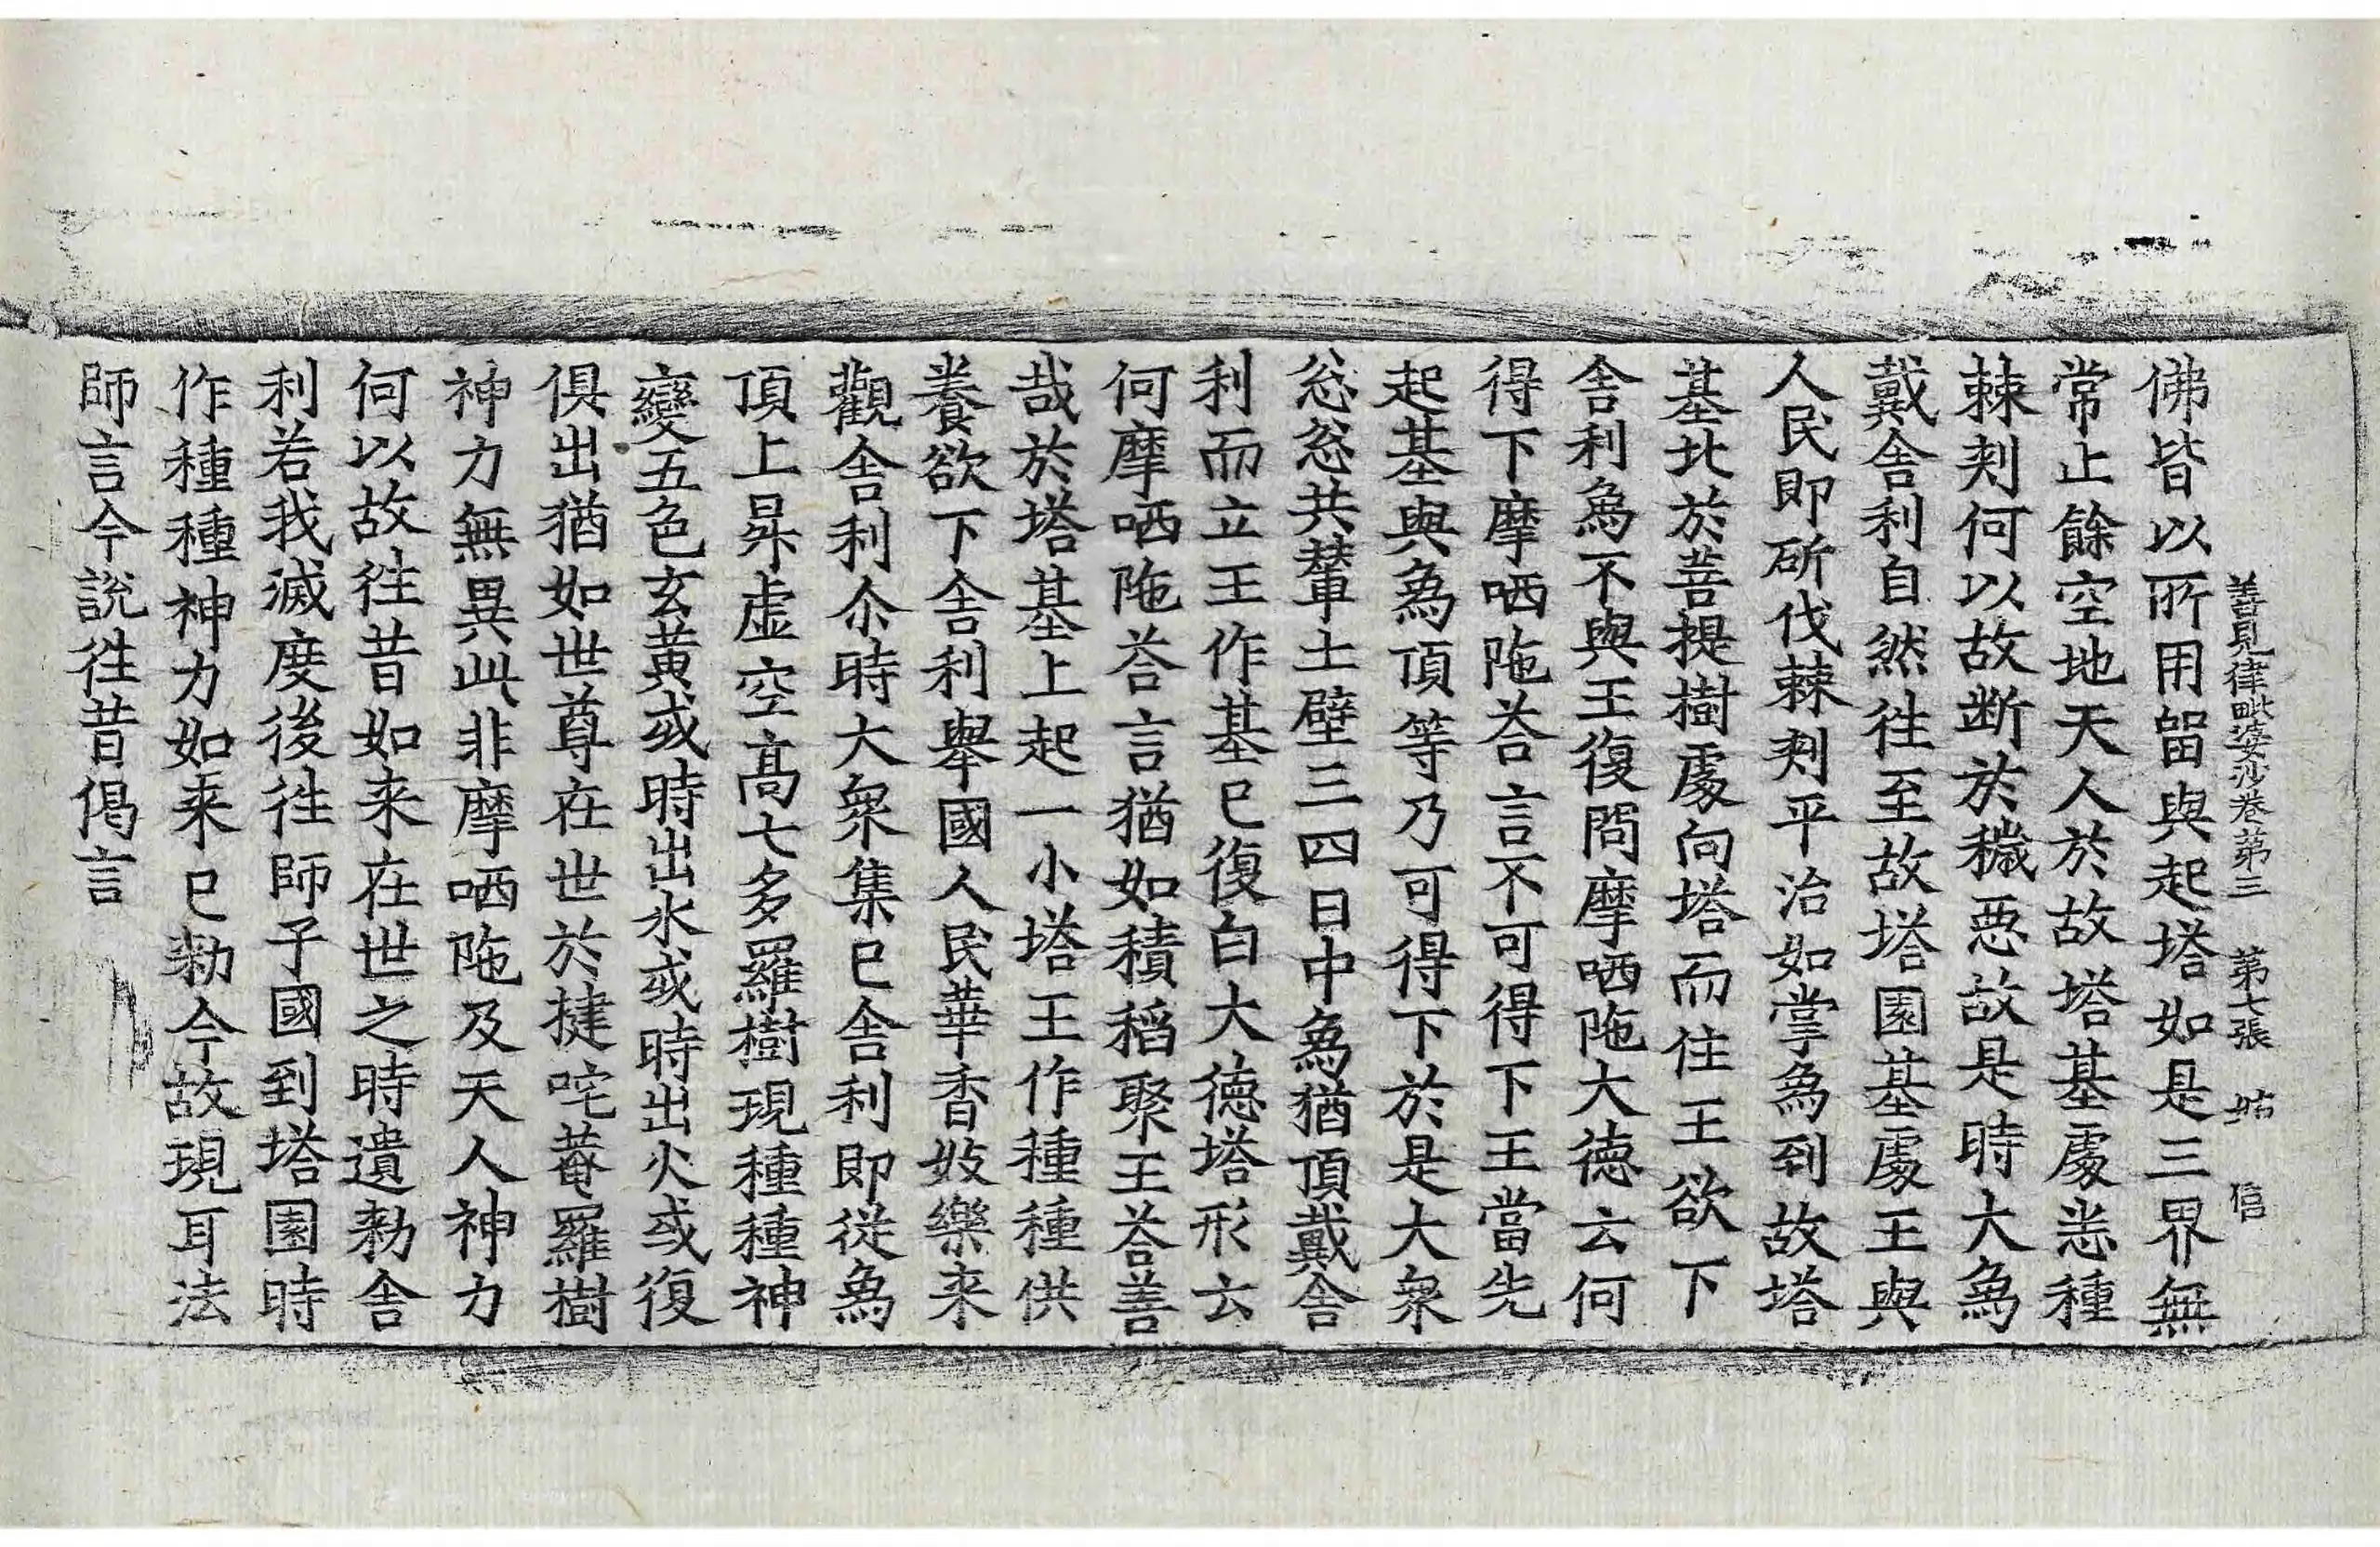 善見律毗婆沙卷第三 第七張 姑 信
佛皆以所用留與起塔如是三界無
常止餘空地天人於故塔基處恙種
棘刾何以故断於穢惡故是時大為
戴舍利自然徃至故塔園基處王與
人民即斫伐棘刾平治如掌為到故塔
基北於菩提樹處向塔而住王欲下
舍利為不與王復問摩哂陁大德云何
得下摩哂陁荅言不可得下王當先
起基與為頂等乃可得下於是大衆
忩忩共輦土壁三四日中為猶頂戴舍
利而立王作基已復白大德塔形云
何摩哂陁荅言猶如積稻聚王荅善
哉於塔基上起一小塔王作種種供
養欲下舍利舉國人民華香妓樂来
觀舍利尒時大衆集已舍利即從為
頂上昇虛空高七多羅樹現種種神
變五色玄黄或時出水或時出火或復
俱出猶如世尊在世於揵咤菴羅樹
神力無異此非摩哂陁及天人神力
何以故徃昔如来在世之時遺勑舍
利若我滅度後徃師子國到塔園時
作種種神力如来已勑今故現耳法
師言今說徃昔偈言